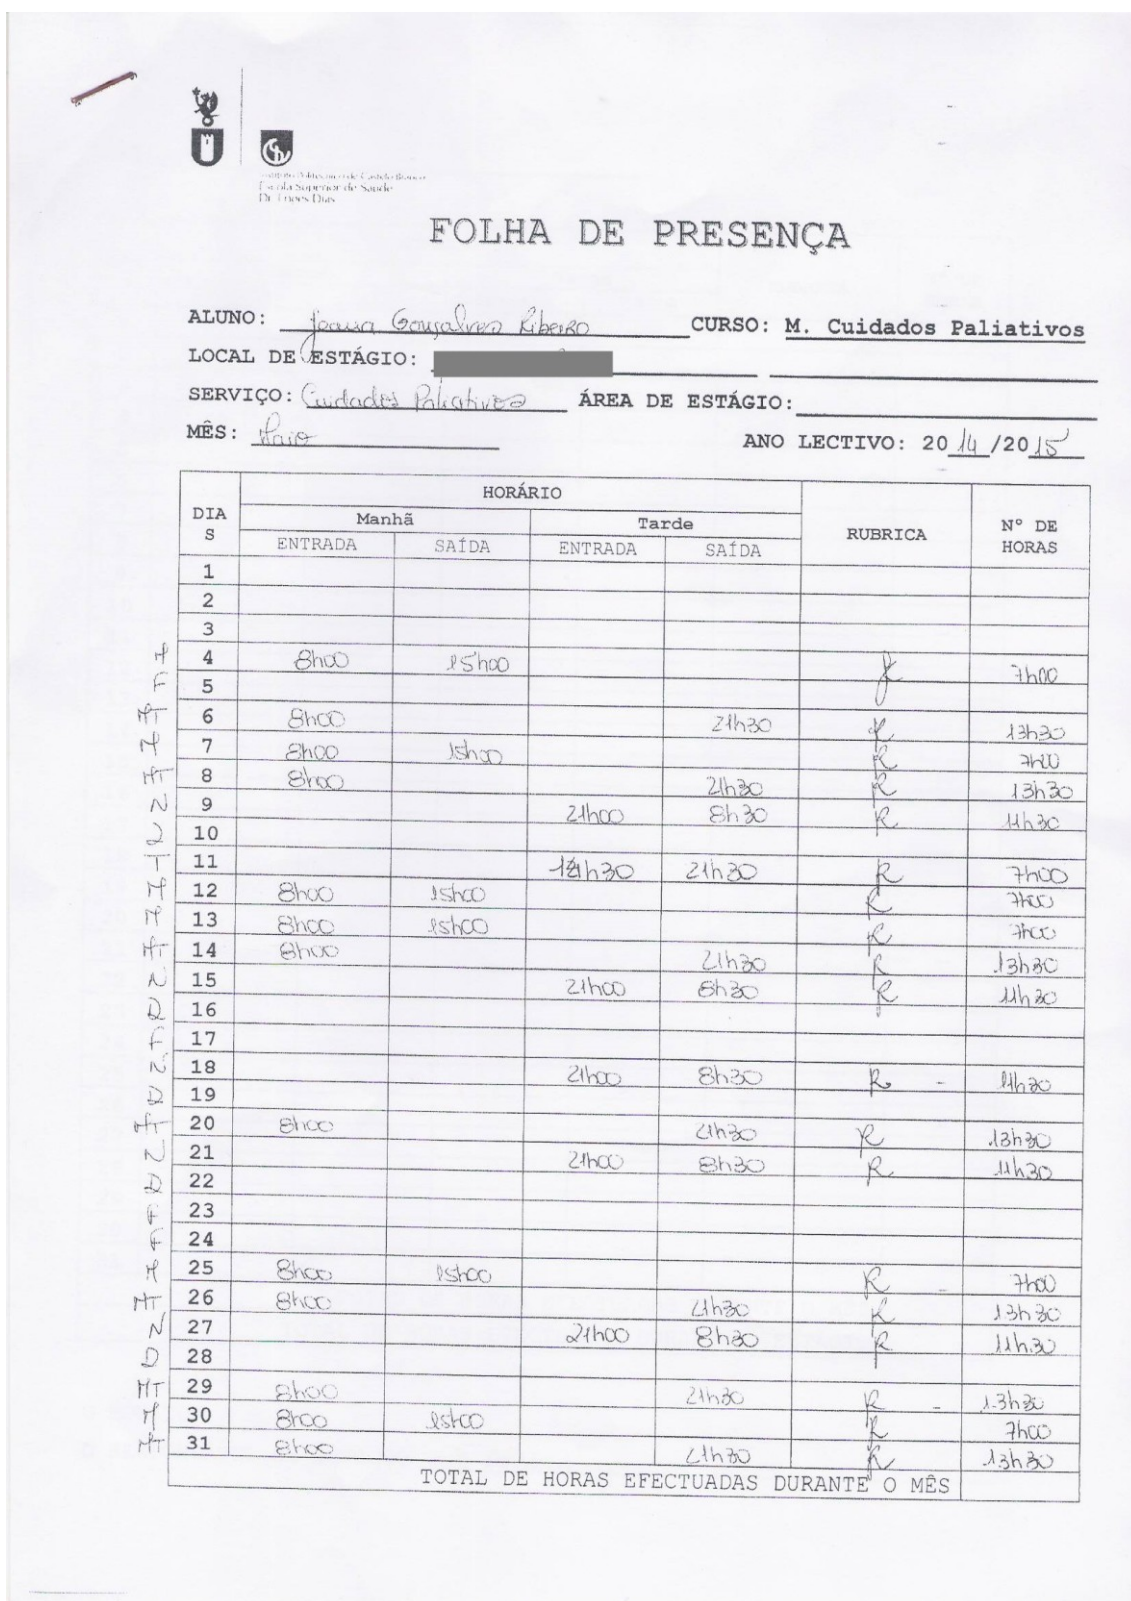 Instituto Politécnico de Castelo Branco
Escola Superior de Saúde
Dr. Lopes Dias
FOLHA DE PRESENÇA
ALUNO: Joana Gonçalves Ribeiro CURSO: M. Cuidados Paliativos
LOCAL DE ESTÁGIO:
SERVIÇO: Cuidados Paliativos ÁREA DE ESTÁGIO:
MÊS: Maio ANO LECTIVO: 2014/2015
DIAS HORÁRIO RUBRICA Nº DE HORAS
Manhã Tarde
ENTRADA SAÍDA ENTRADA SAÍDA
1
2
3
M 4 8h00 15h00 7h00
F 5
MT 6 8h00 21h30 R 13h30
M 7 8h00 15h00 R 7h00
MT 8 8h00 21h30 R 13h30
N 9 21h00 8h30 R 11h30
10
T 11 14h30 21h30 R 7h00
M 12 8h00 15h00 R 7h00
M 13 8h00 15h00 R 7h00
MT 14 8h00 21h30 R 13h30
N 15 21h00 8h30 R 11h30
D 16
F 17
N 18 21h00 8h30 R 11h30
D 19
MT 20 8h00 21h30 R 13h30
N 21 21h00 8h30 R 11h30
D 22
F 23
F 24
M 25 8h00 15h00 R 7h00
MT 26 8h00 21h30 R 13h30
N 27 21h00 8h30 R 11h30
D 28
MT 29 8h00 21h30 R 13h30
M 30 8h00 15h00 R 7h00
MT 31 8h00 21h30 R 13h30
TOTAL DE HORAS EFECTUADAS DURANTE O MÊS